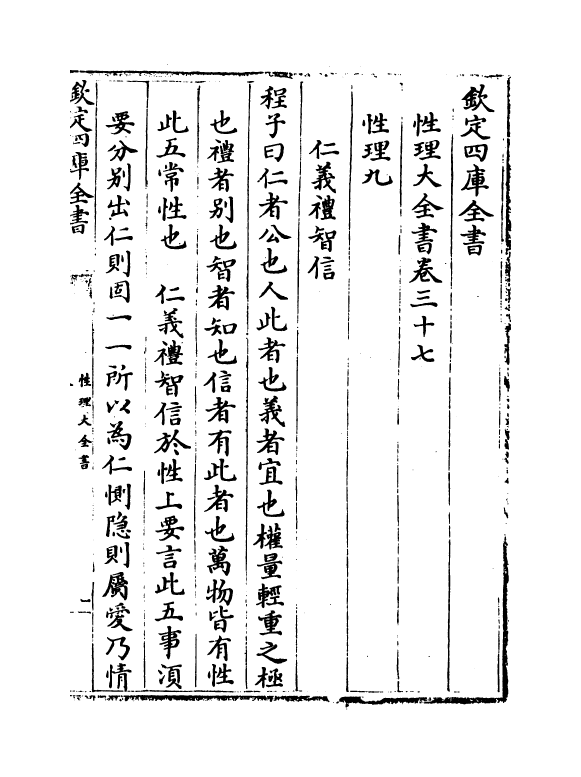 欽定四庫全書
性理大全書卷三十七
性理九
仁義禮智信
程子曰仁者公也人此者也義者宜也權量輕重之極
也禮者别也智者知也信者有此者也萬物皆有性
此五常性也　仁義禮智信於性上要言此五事湏
要分别出仁則固一一所以為仁惻隱則屬愛乃情
欽定四庫全書
性理大全書
一